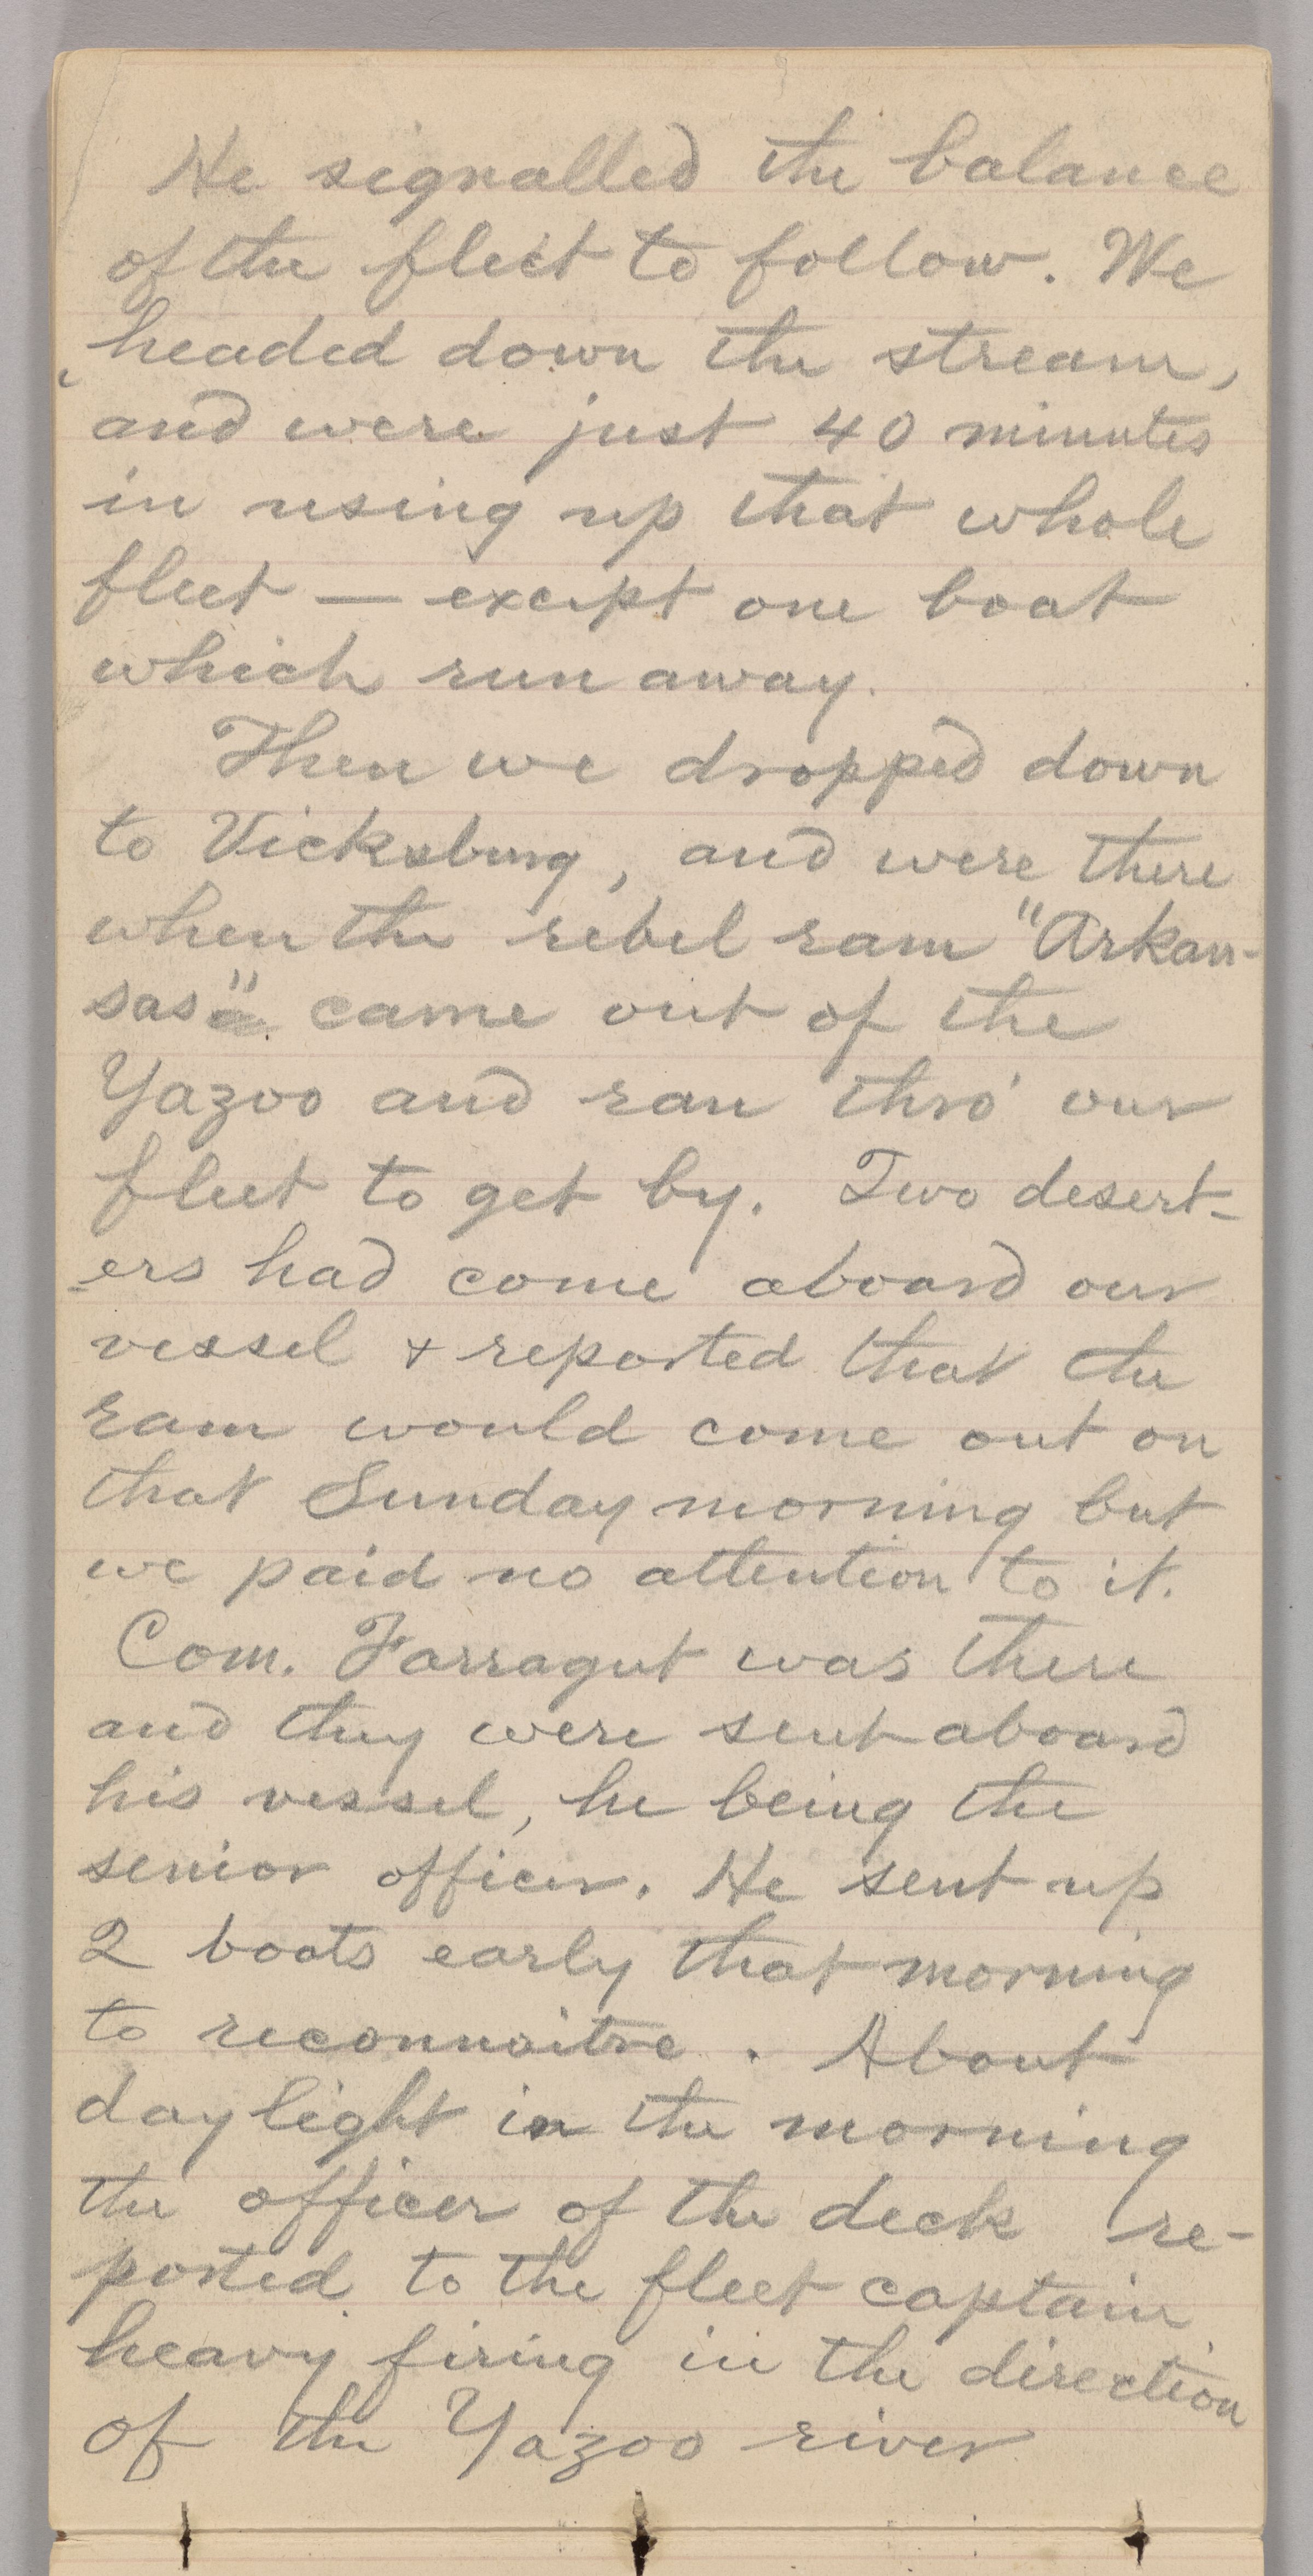 He signalled the balance
of the fleet to follow. We
headed down the stream,
and were just 40 minutes
in using up that whole
fleet — except one boat
which run away.
Then we dropped down
to Vicksburg, and were there
when the rebel ram "Arkan-
sas" came out of the
Yazoo and ran thro' our
fleet to get by. Two desert-
-ers had come aboard our
vessel & reported that the
ram would come out on
that Sunday morning but
we paid no attention to it.
Com. Farragut was there
and they were sent aboard
his vessel, he being the
senior officer. He sent up
2 boats early that morning
to reconnoitre. About
daylight in the morning
the officer of the deck re-
ported to the fleet captain
heavy firing in the direction
of the Yazoo river